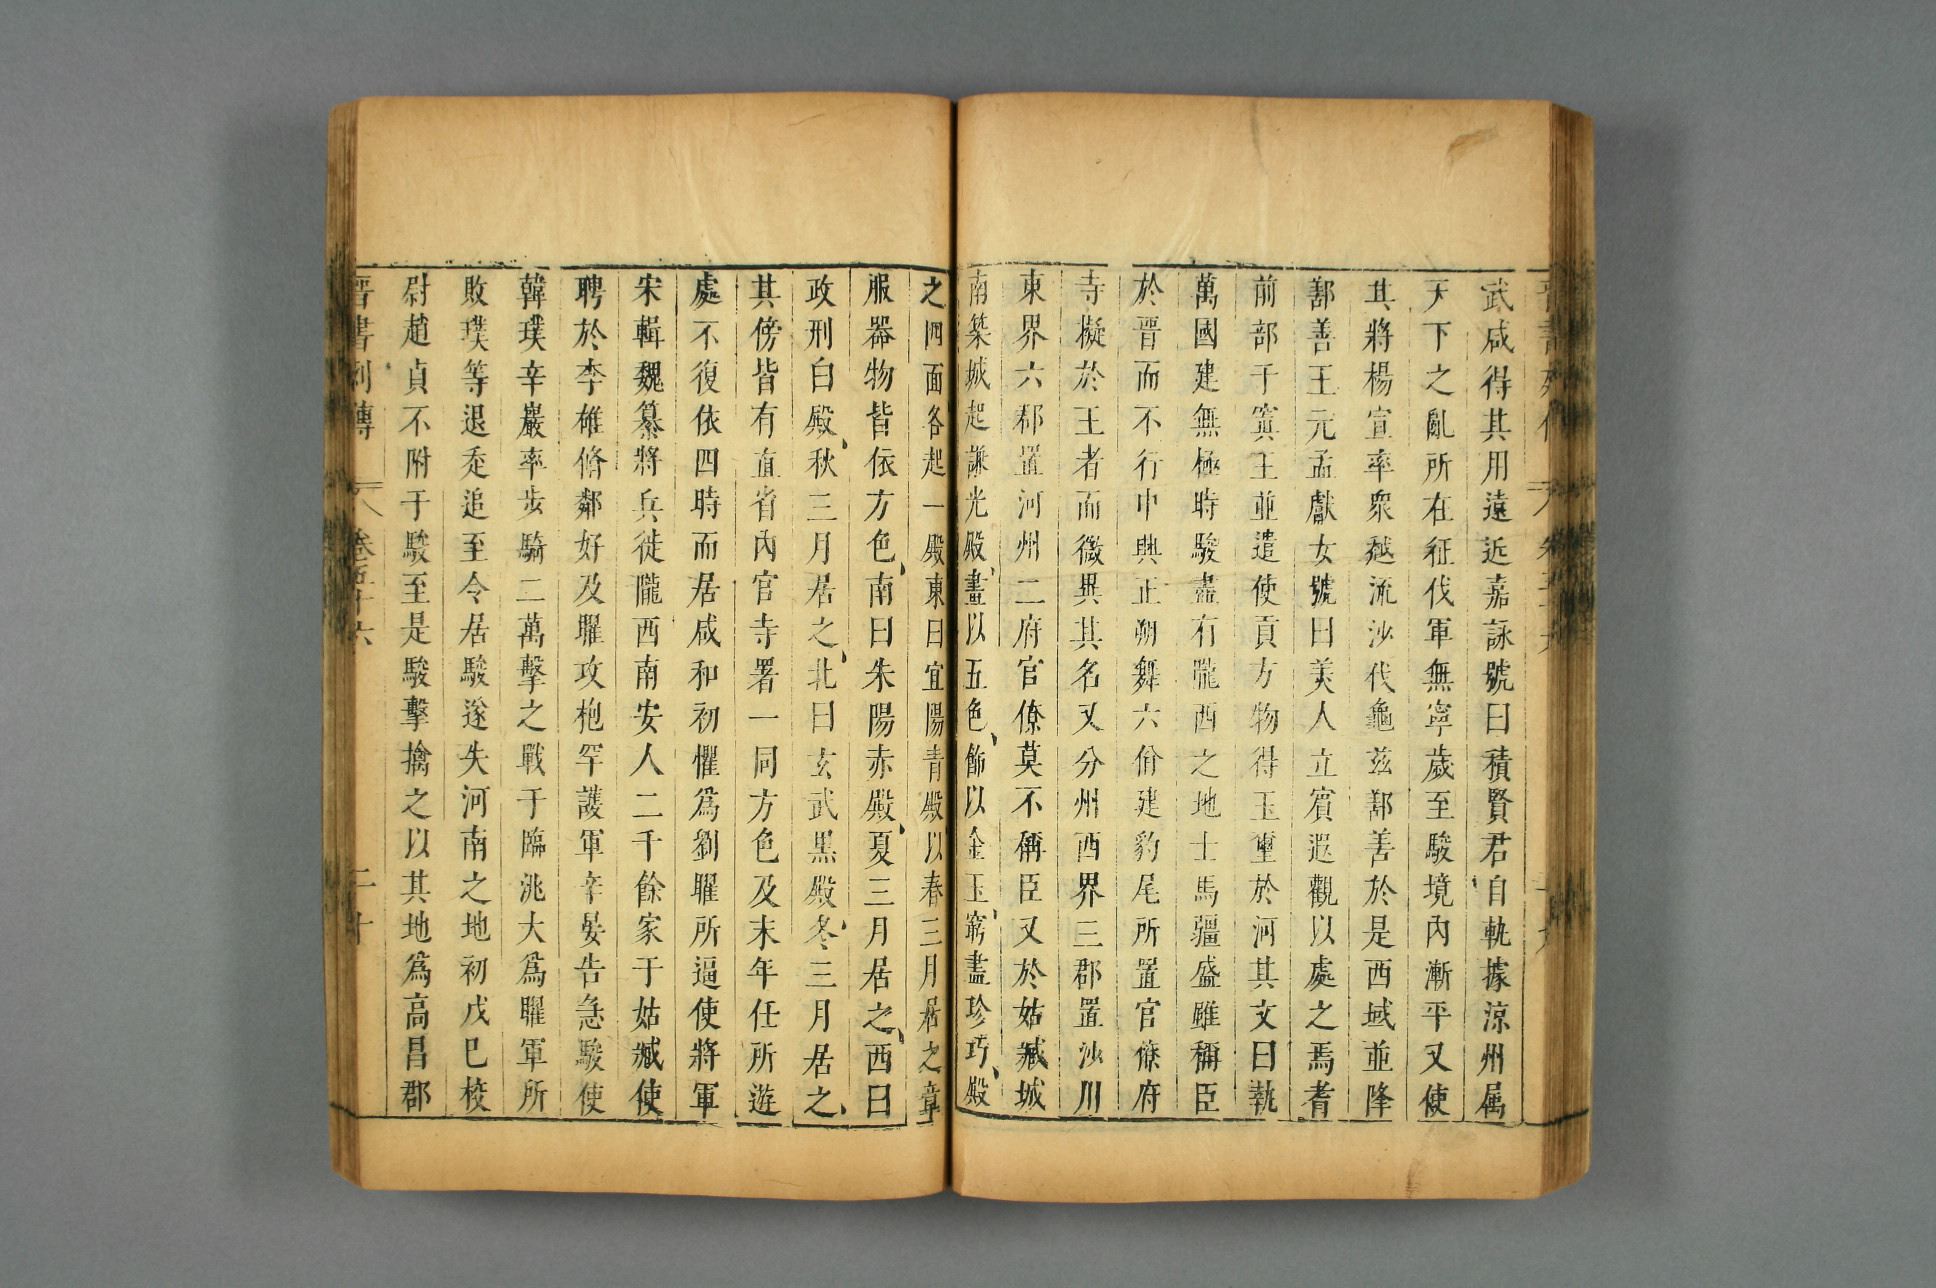 武咸得其用遠近嘉詠號曰積賢君自軌據涼州属
天下之亂所在征伐軍無寧歲至駿境內漸平又使
其將楊宣率衆越流沙伐龜茲鄯善於是西域並降
鄯善王元孟獻女號曰美人立賓遐觀以處之焉耆
前部于寘王並遣使貢方物得玉璽於河其文曰執
萬國建無極時駿盡有隴西之地士馬疆盛雖稱臣
於晉而不行中興正朔舞六佾建豹尾所置官僚府
寺擬於王者而微異其名又分州西界三郡置沙川
東界六郡置河州二府官僚莫不稱臣又於姑臧城
南築城起謙光殿畫以五色飾以金玉窮盡珍巧殿
之四面各起一殿東曰宜陽青殿以春三月居之章
服器物皆依方色南曰朱陽赤殿夏三月居之西曰
政刑白殿秋三月居之北曰玄武黑殿冬三月居之
其傍皆有直省內官寺署一同方色及末年任所遊
處不復依四時而居咸和初懼爲劉曜所逼使將軍
宋輯魏纂將兵徙隴西南安人二千餘家于姑臧使
聘於李雄脩鄰好及曜攻枹罕護軍辛晏告急駿使
韓璞辛巖率步騎二萬擊之戰于臨洮大爲曜軍所
敗璞等退走追至令居駿遂失河南之地初戊巳校
尉趙貞不附于駿至是駿擊擒之以其地爲高昌郡
晉書列傳 卷五十六 二十